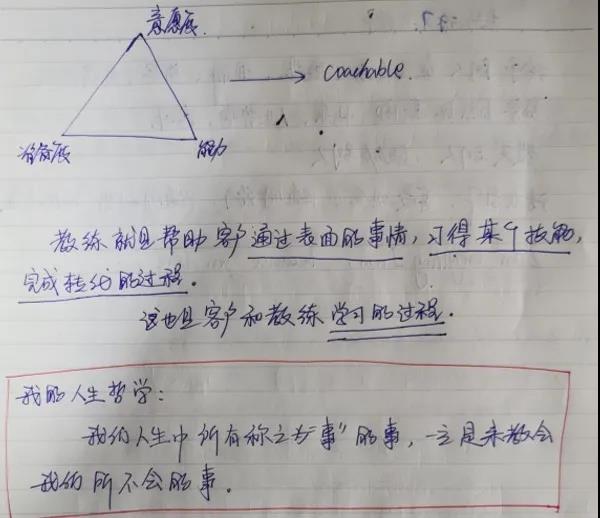 意愿度
coachable.
准备度
能力
教练就是帮助客户通过表面的事情，习得某个技能，
完成转化的过程。
这也是客户和教练学习的过程。
我的人生哲学：
我们人生中所有称之为"事"的事，一定是来教会
我们所不会的事。